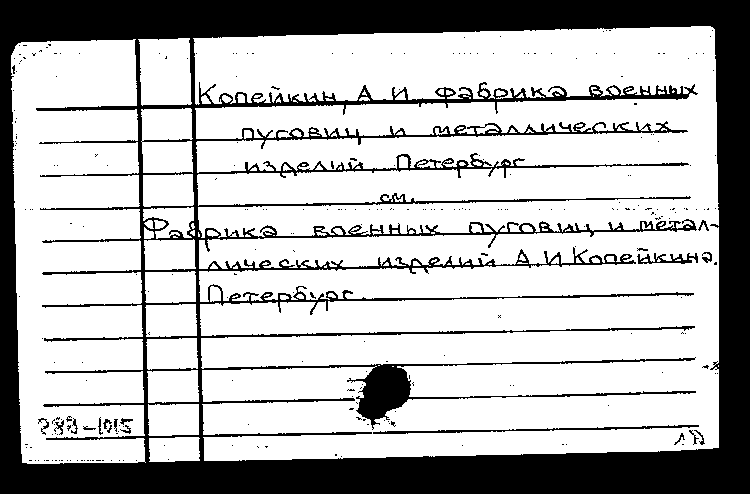 Копейкин, А. И, фабрика военных
пуговиц и металлических
изделий. Петербург
см.
Фабрика военных пуговиц и метал-
лических изделий А. И Копейкина.
Петербург.